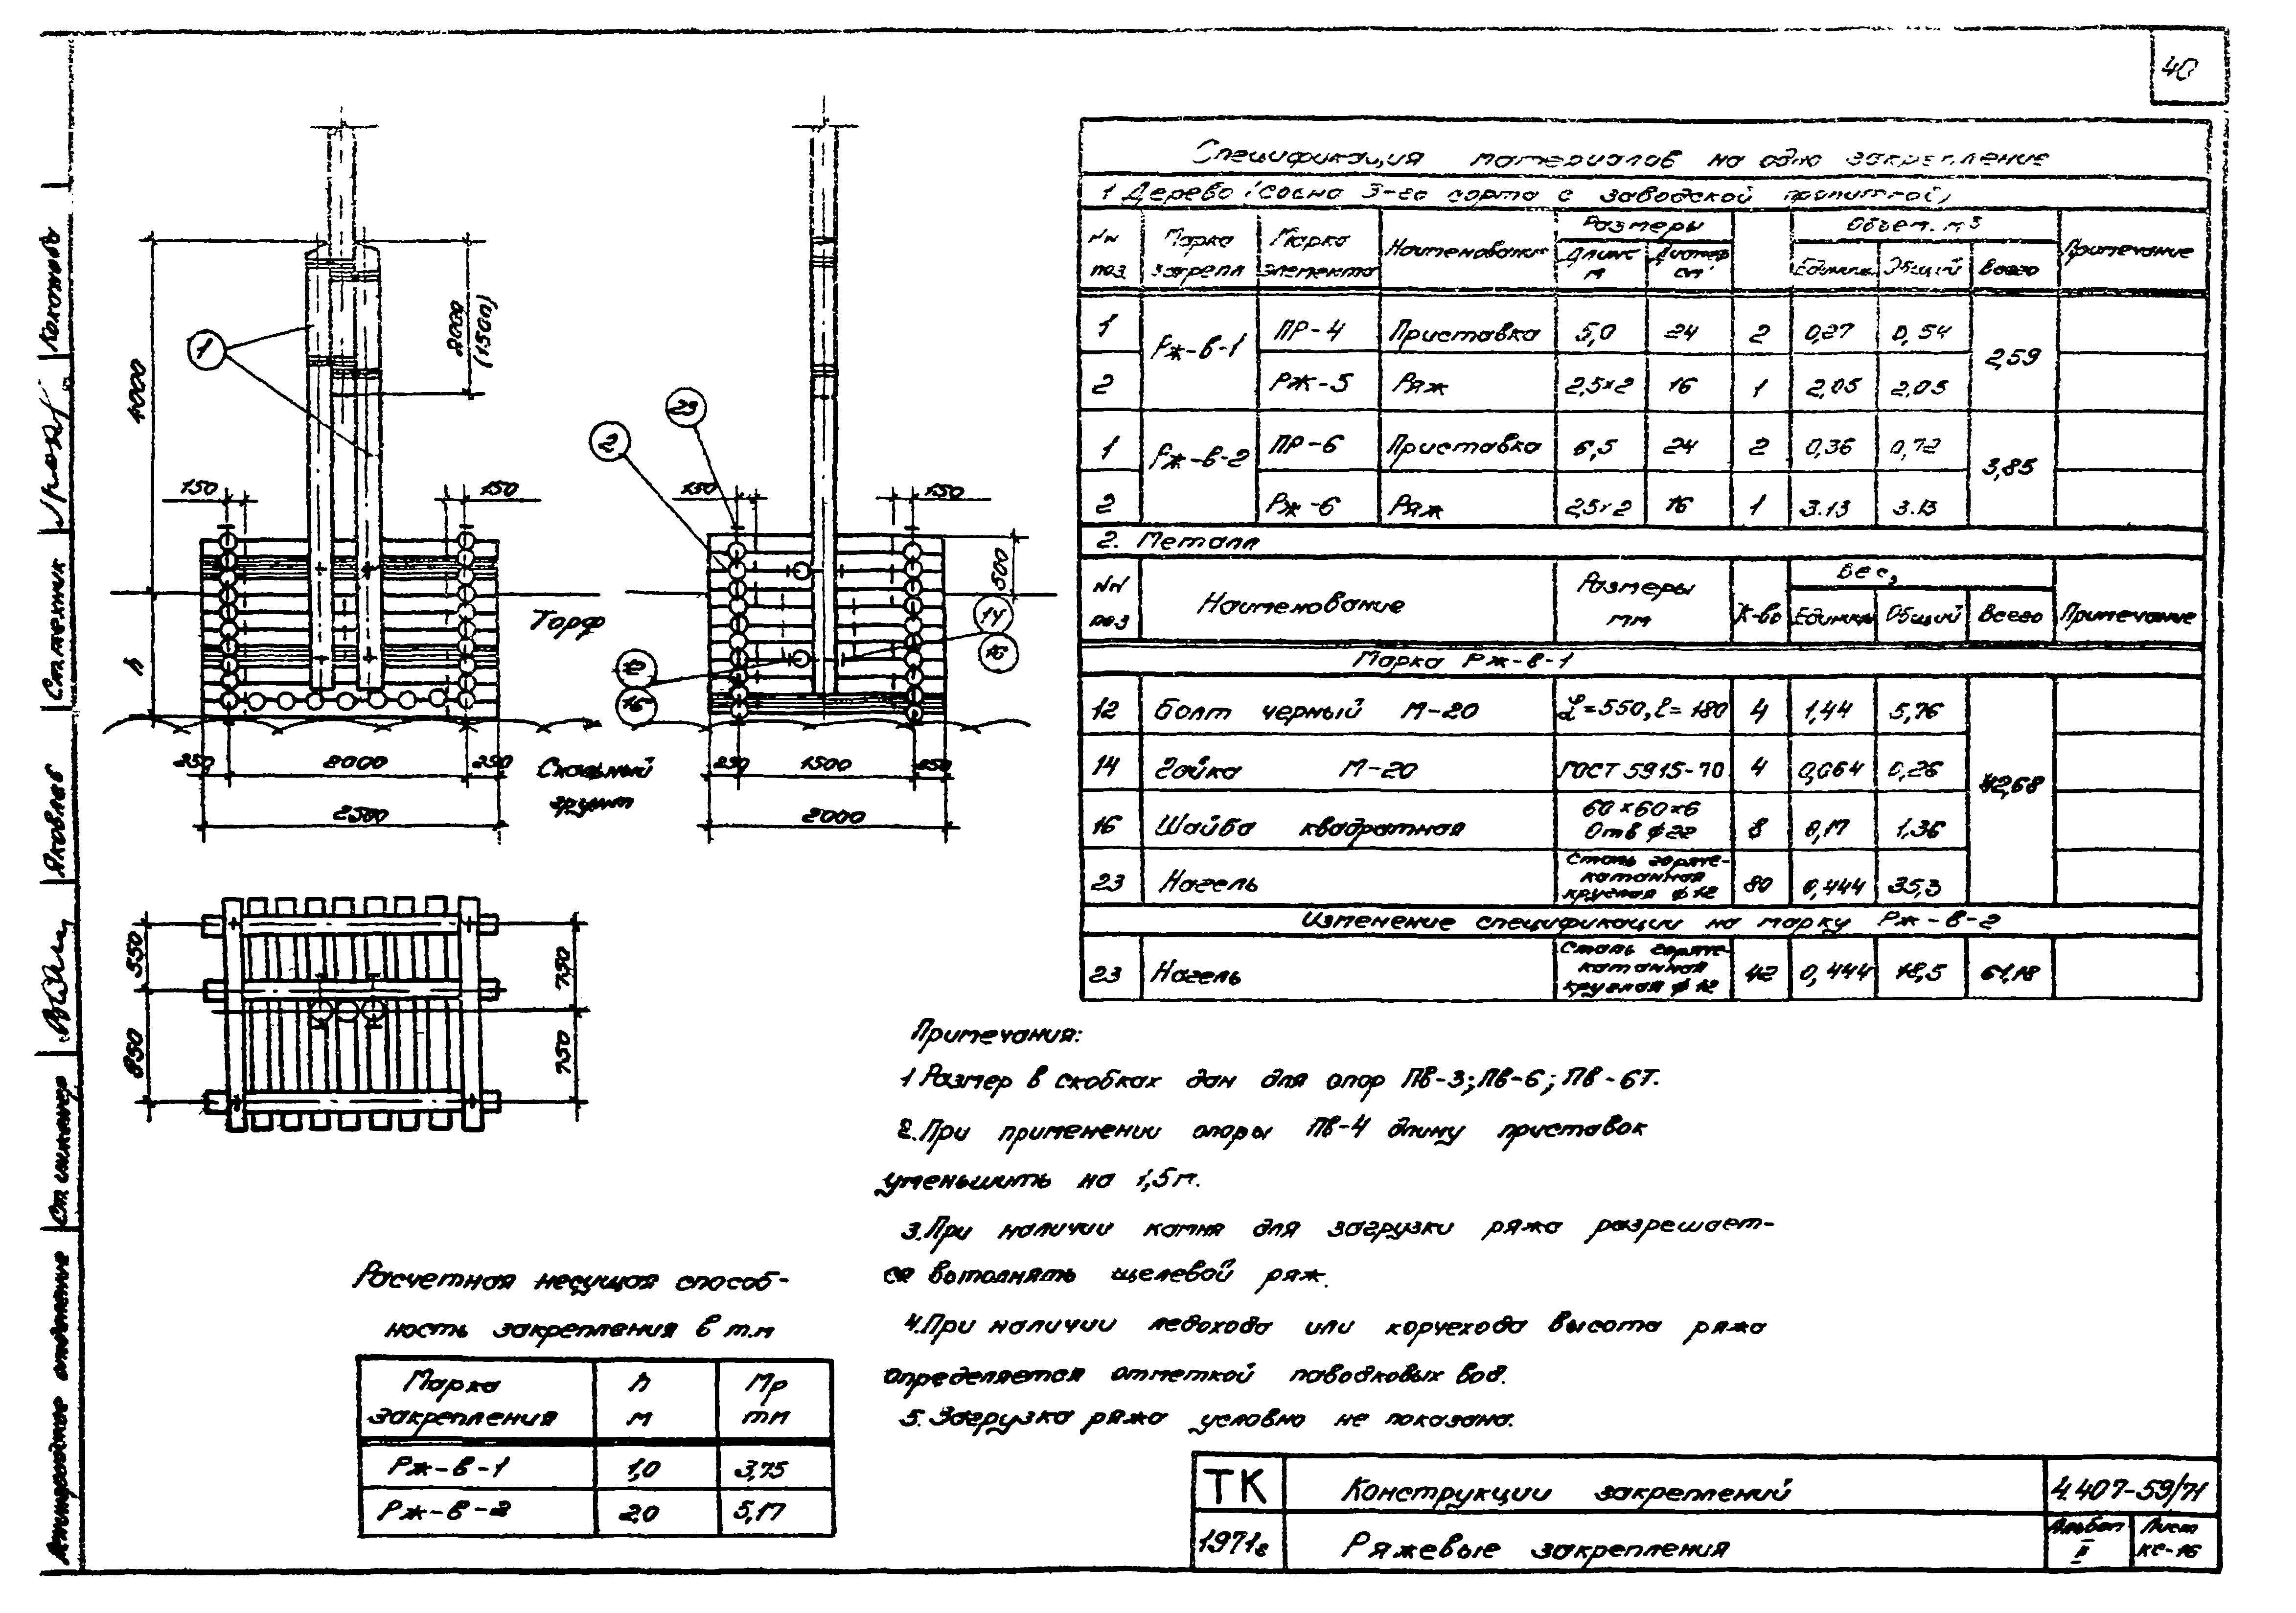 40
Спецификация материалов на одно закрепление
1 Дерево (сосна 3-го сорта с заводской пропиткой)
NN поз. Марка закрепл Марка элемента Наименование Размеры Длина м Диаметр см Объем, м3 Единицы Общий Всего Примечание
1 Рж-в-1 ПР-4 Приставка 5,0 24 2 0,27 0,54 2,59
2 РЖ-5 Ряж 2,5×2 16 1 2,05 2,05
1 Рж-в-2 ПР-6 Приставка 6,5 24 2 0,36 0,72 3,85
2 Рж-6 Ряж 2,5×2 16 1 3.13 3.13
2. Металл
NN поз Наименование Размеры мм К-во Вес, Единицы Общий Всего Примечание
Марка Рж-в-1
12 Болт черный М-20 L=550, l=180 4 1,44 5,76 42,68
14 Гайка М-20 ГОСТ 5915-70 4 0,064 0,26
16 Шайба квадратная 60×60×6 Отв ф22 8 0,17 1,36
23 Нагель Сталь горяче-катанная круглая ф12 80 0,444 35,3
Изменение спецификации на марку Рж-в-2
23 Нагель Сталь горяче-катанная круглая ф12 42 0,444 18,5 61,18
4000
2000
(1500)
1
150
150
h
Торф
250
2000
250
2500
Скальный
грунт
23
2
150
150
500
14
16
12
16
250
1500
250
2000
550
850
750
750
Примечания:
1 Размер в скобках дан для опор ПВ-3; ПВ-6; ПВ-6Т.
2. При применении опоры ПВ-4 длину приставок
уменьшить на 1,5м.
3. При наличии камня для загрузки ряжа разрешает-
ся выполнять щелевой ряж.
4. При наличии ледохода или корчехода высота ряжа
определяется отметкой паводковых вод.
5. Загрузка ряжа условно не показана.
Расчетная несущая способ-
ность закрепления в т.м
Марка закрепления h м Мр тм
Рж-в-1 1,0 3,75
Рж-в-2 2,0 5,17
ТК Конструкции закреплений 4.407-59/71
1971г Ряжевые закрепления Альбом II Лист КС-16
Ст. техник Кокотов
Ст. инженер Яковлев